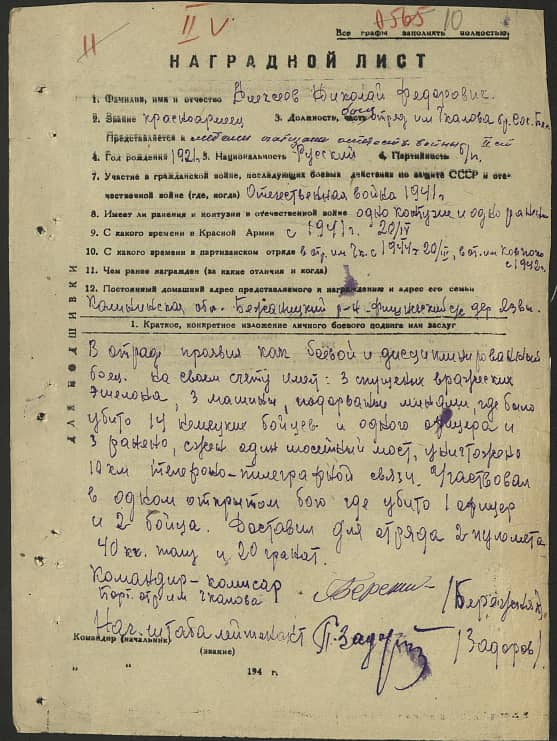 II V
0565 10
II
Все графы заполнять полностью.
НАГРАДНОЙ ЛИСТ
1. Фамилия, имя и отчество Алексеев Николай Федорович.
2. Звание красноармеец 3. Должность, часть боец отряд им Чкалова
Представляется к медали II ст
4. Год рождения 1921 5. Национальность Русский 6. Партийность б/п.
7. Участие в гражданской войне, последующих боевых действиях по защите СССР и оте-
чественной войне (где, когда) Отечественная война 1941г.
8. Имеет ли ранения и контузии в отечественной войне одно контузие и одно ранение
9. С какого времени в Красной Армии с 1941г. 20/IV
10. С какого времени в партизанском отряде в отр. им Чк. с 1944г 20/IV, в от. им
с 1942г.
11. Чем ранее награжден (за какие отличия и когда)
12. Постоянный домашний адрес представляемого к награждению и адрес его семьи
Калининская обл. Бежаницкий р-н с/с дер
1. Краткое, конкретное изложение личного боевого подвига или заслуг
ДЛЯ ПОДШИВКИ
В отряде проявил как боевой и дисциплинированный
боец. На своем счету имеет: 3 спущеных вражеских
эшелона, 3 машины, подорваные минами, где было
убито 14 немецких бойцев и одного офицера и
3 ранено, сжег один шосейный мост, уничтожено
10 км телефоно-телеграфной связи. Участвовал
в одном открытом бою где убито 1 офицер
и 2 бойца. Доставил для отряда 2 пулемета
40 кг. толу и 20 гранат.
Командир-комисар
парт. отр. им Чкалова
Нач. штаба лейтенант П. Задоров /Задоров/
Командир (начальник)
(звание)
" " 194 г.